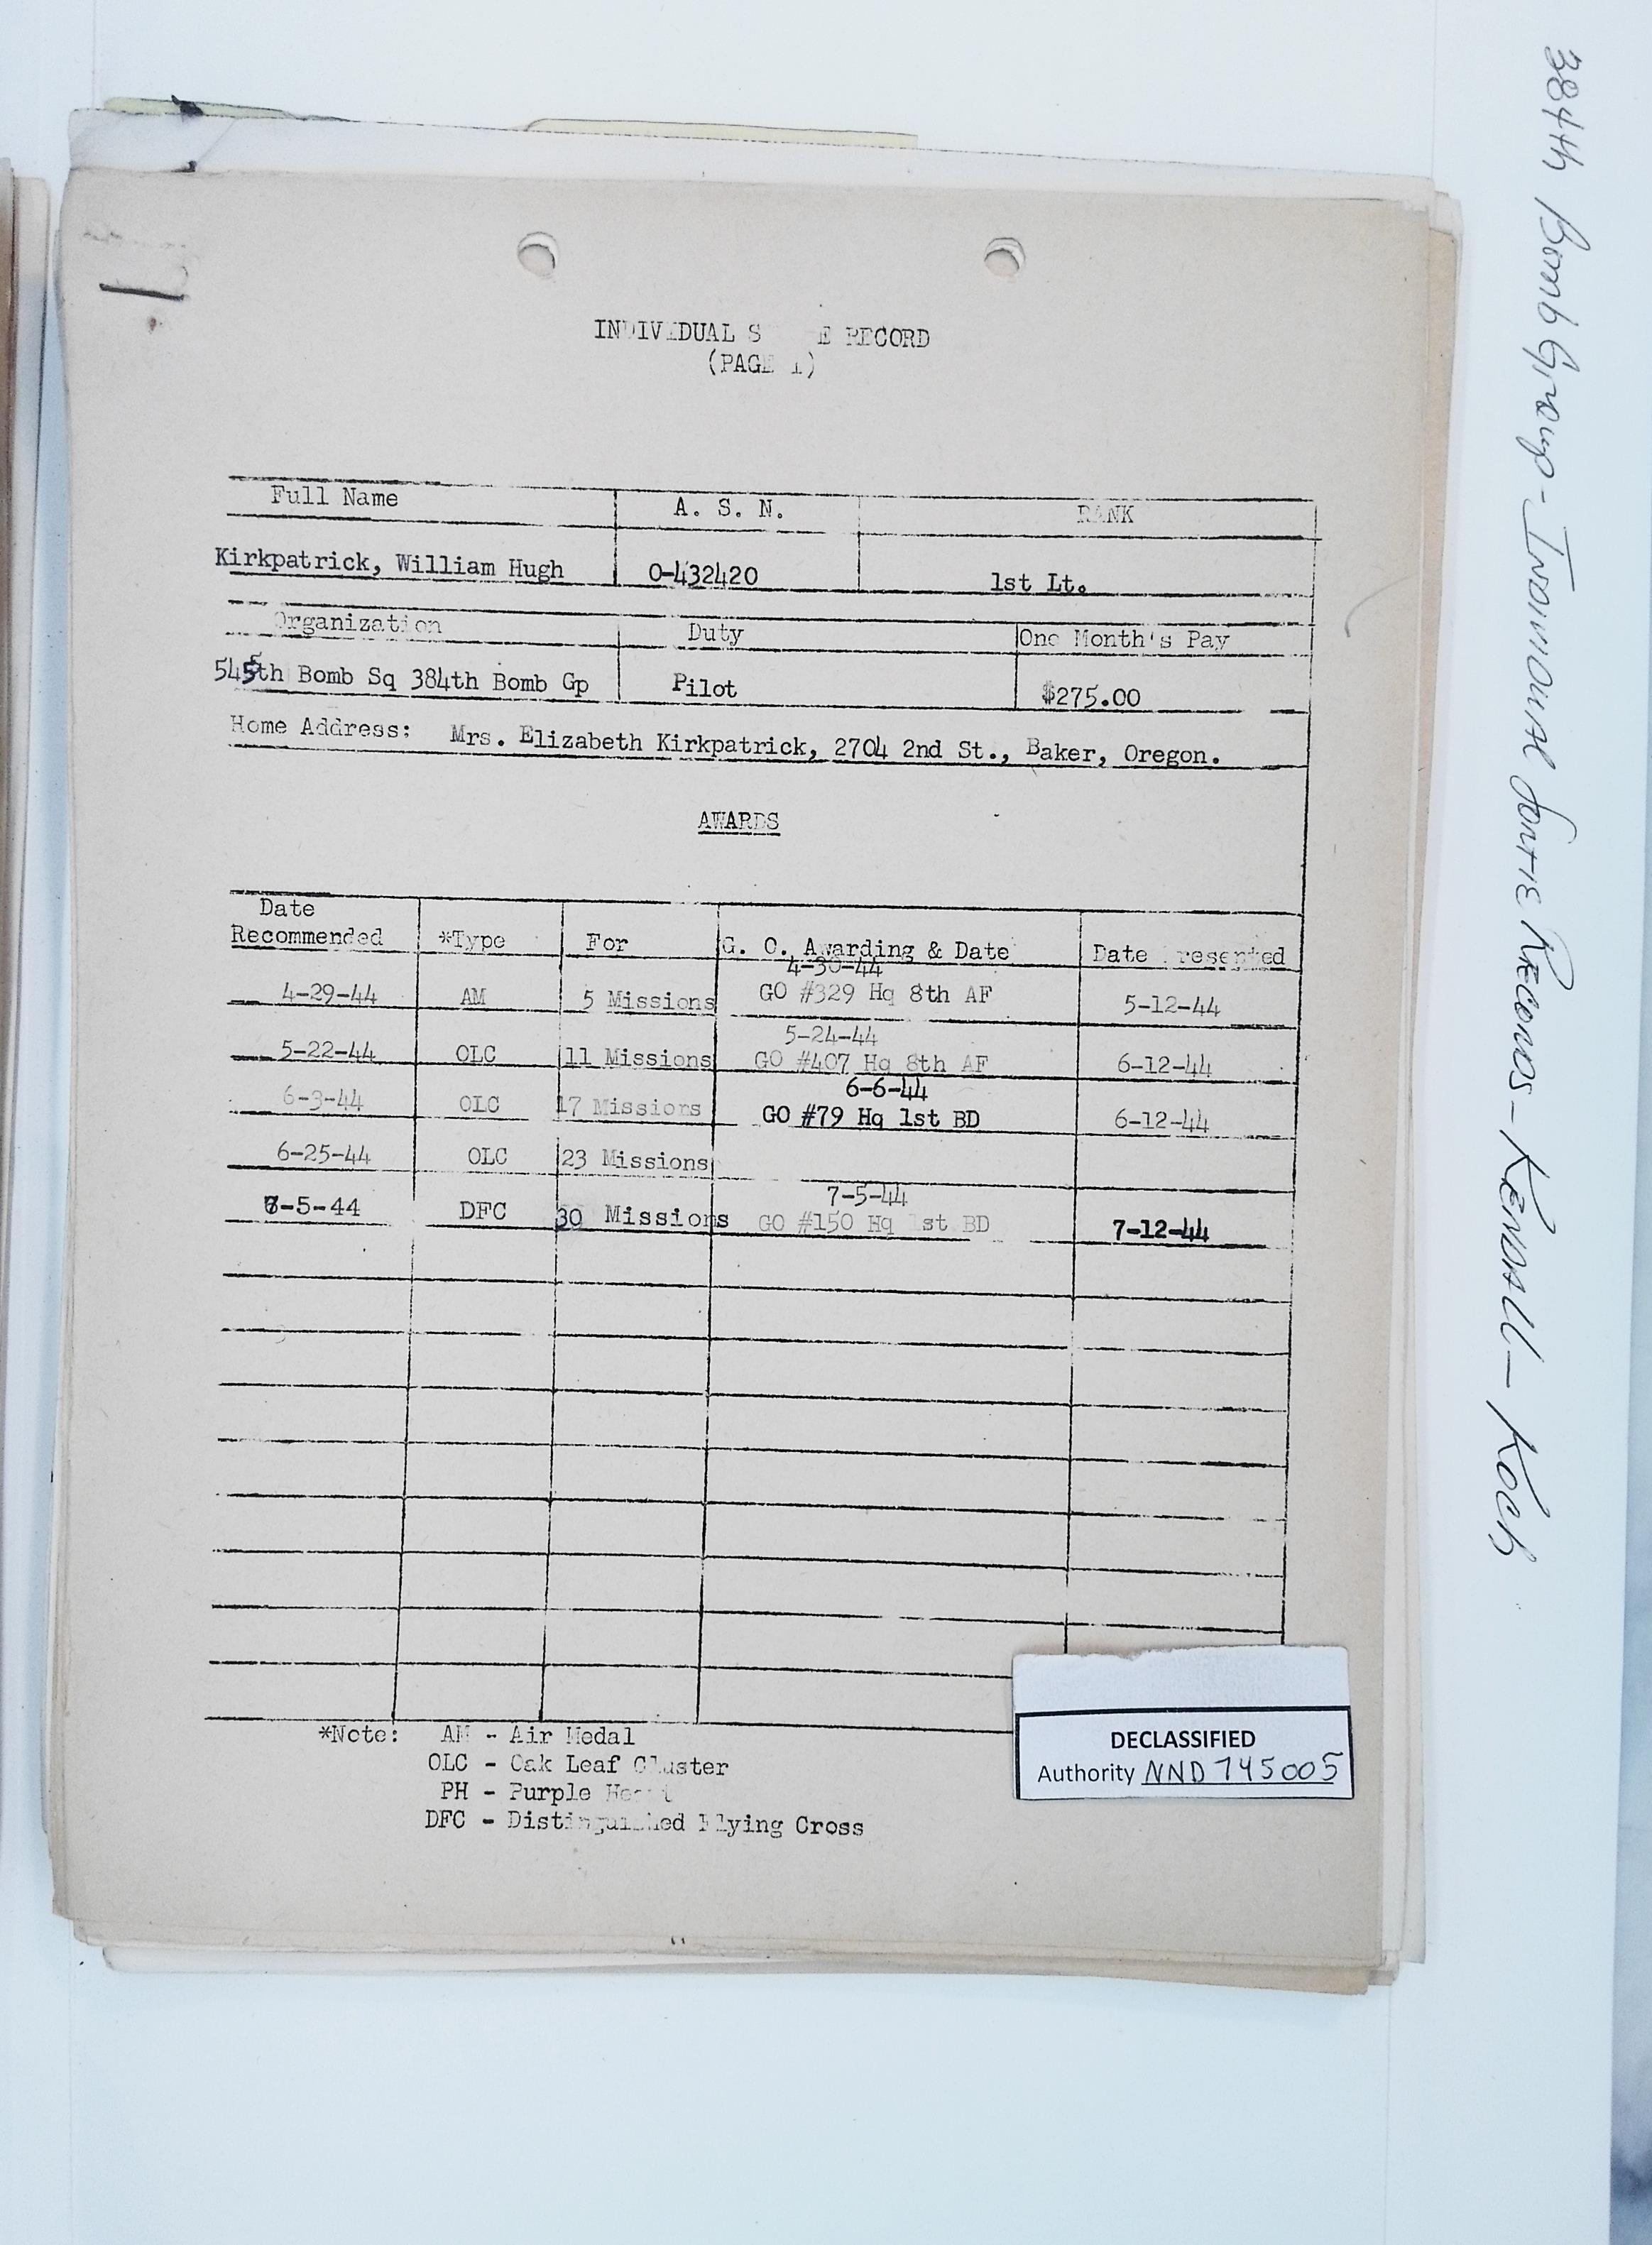 INDIVIDUAL S E RECORD
(PAGE 1)
Full Name A. S. N. RANK
Kirkpatrick, William Hugh O-432420 1st Lt.
Organization Duty One Month's Pay
545th Bomb Sq 384th Bomb Gp Pilot $275.00
Home Address: Mrs. Elizabeth Kirkpatrick, 2704 2nd St., Baker, Oregon.
AWARDS
Date
Recommended *Type For G. O. Awarding & Date Date Presented
4-30-44
4-29-44 AM 5 Missions GO #329 Hq 8th AF 5-12-44
5-24-44
5-22-44 OLC 11 Missions GO #407 Hq 8th AF 6-12-44
6-6-44
6-3-44 OLC 17 Missions GO #79 Hq 1st BD 6-12-44
6-25-44 OLC 23 Missions
7-5-44
-5-44 DFC 30 Missions GO #150 Hq 1st BD 7-12-44
*Note: AM - Air Medal
OLC - Oak Leaf Cluster
PH - Purple Heart
DFC - Distinguished Flying Cross
DECLASSIFIED
Authority NND 745005
384th Bomb Group - Individual Sortie Records - Kendall - Koch